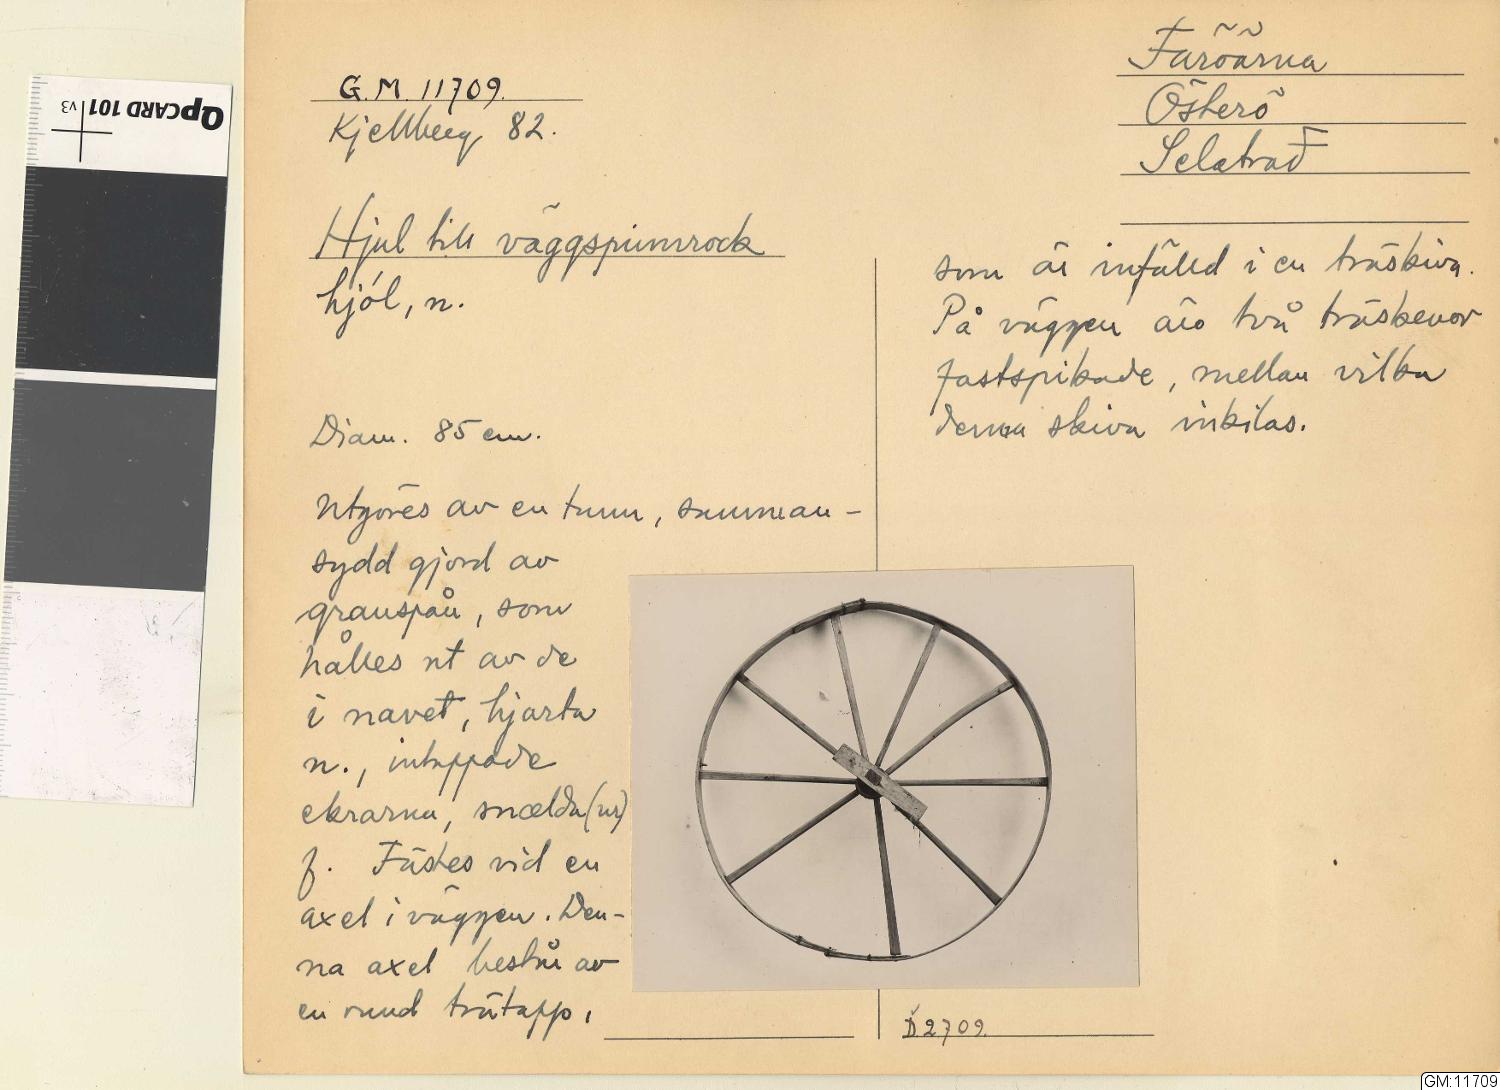 QPCARD 101 v3
G.M. 11709.
Kjellberg 82.
Färöarna
Österö
Selatrað
Hjul till väggspinnrock
hjól, n.
Diam. 85 cm.
Utgöres av en tunn, samman-
sydd gjord av
granspån, som
hålles ut av de
i navet, hjarta
n., intappade
ekrarna, snælda(ur)
f. Fästes vid en
axel i väggen. Den-
na axel består av
en rund trätapp,
som är infälld i en träskiva.
På väggen äro två träskenor
fastspikade, mellan vilka
denna skiva inkilas.
D2709.
GM:11709